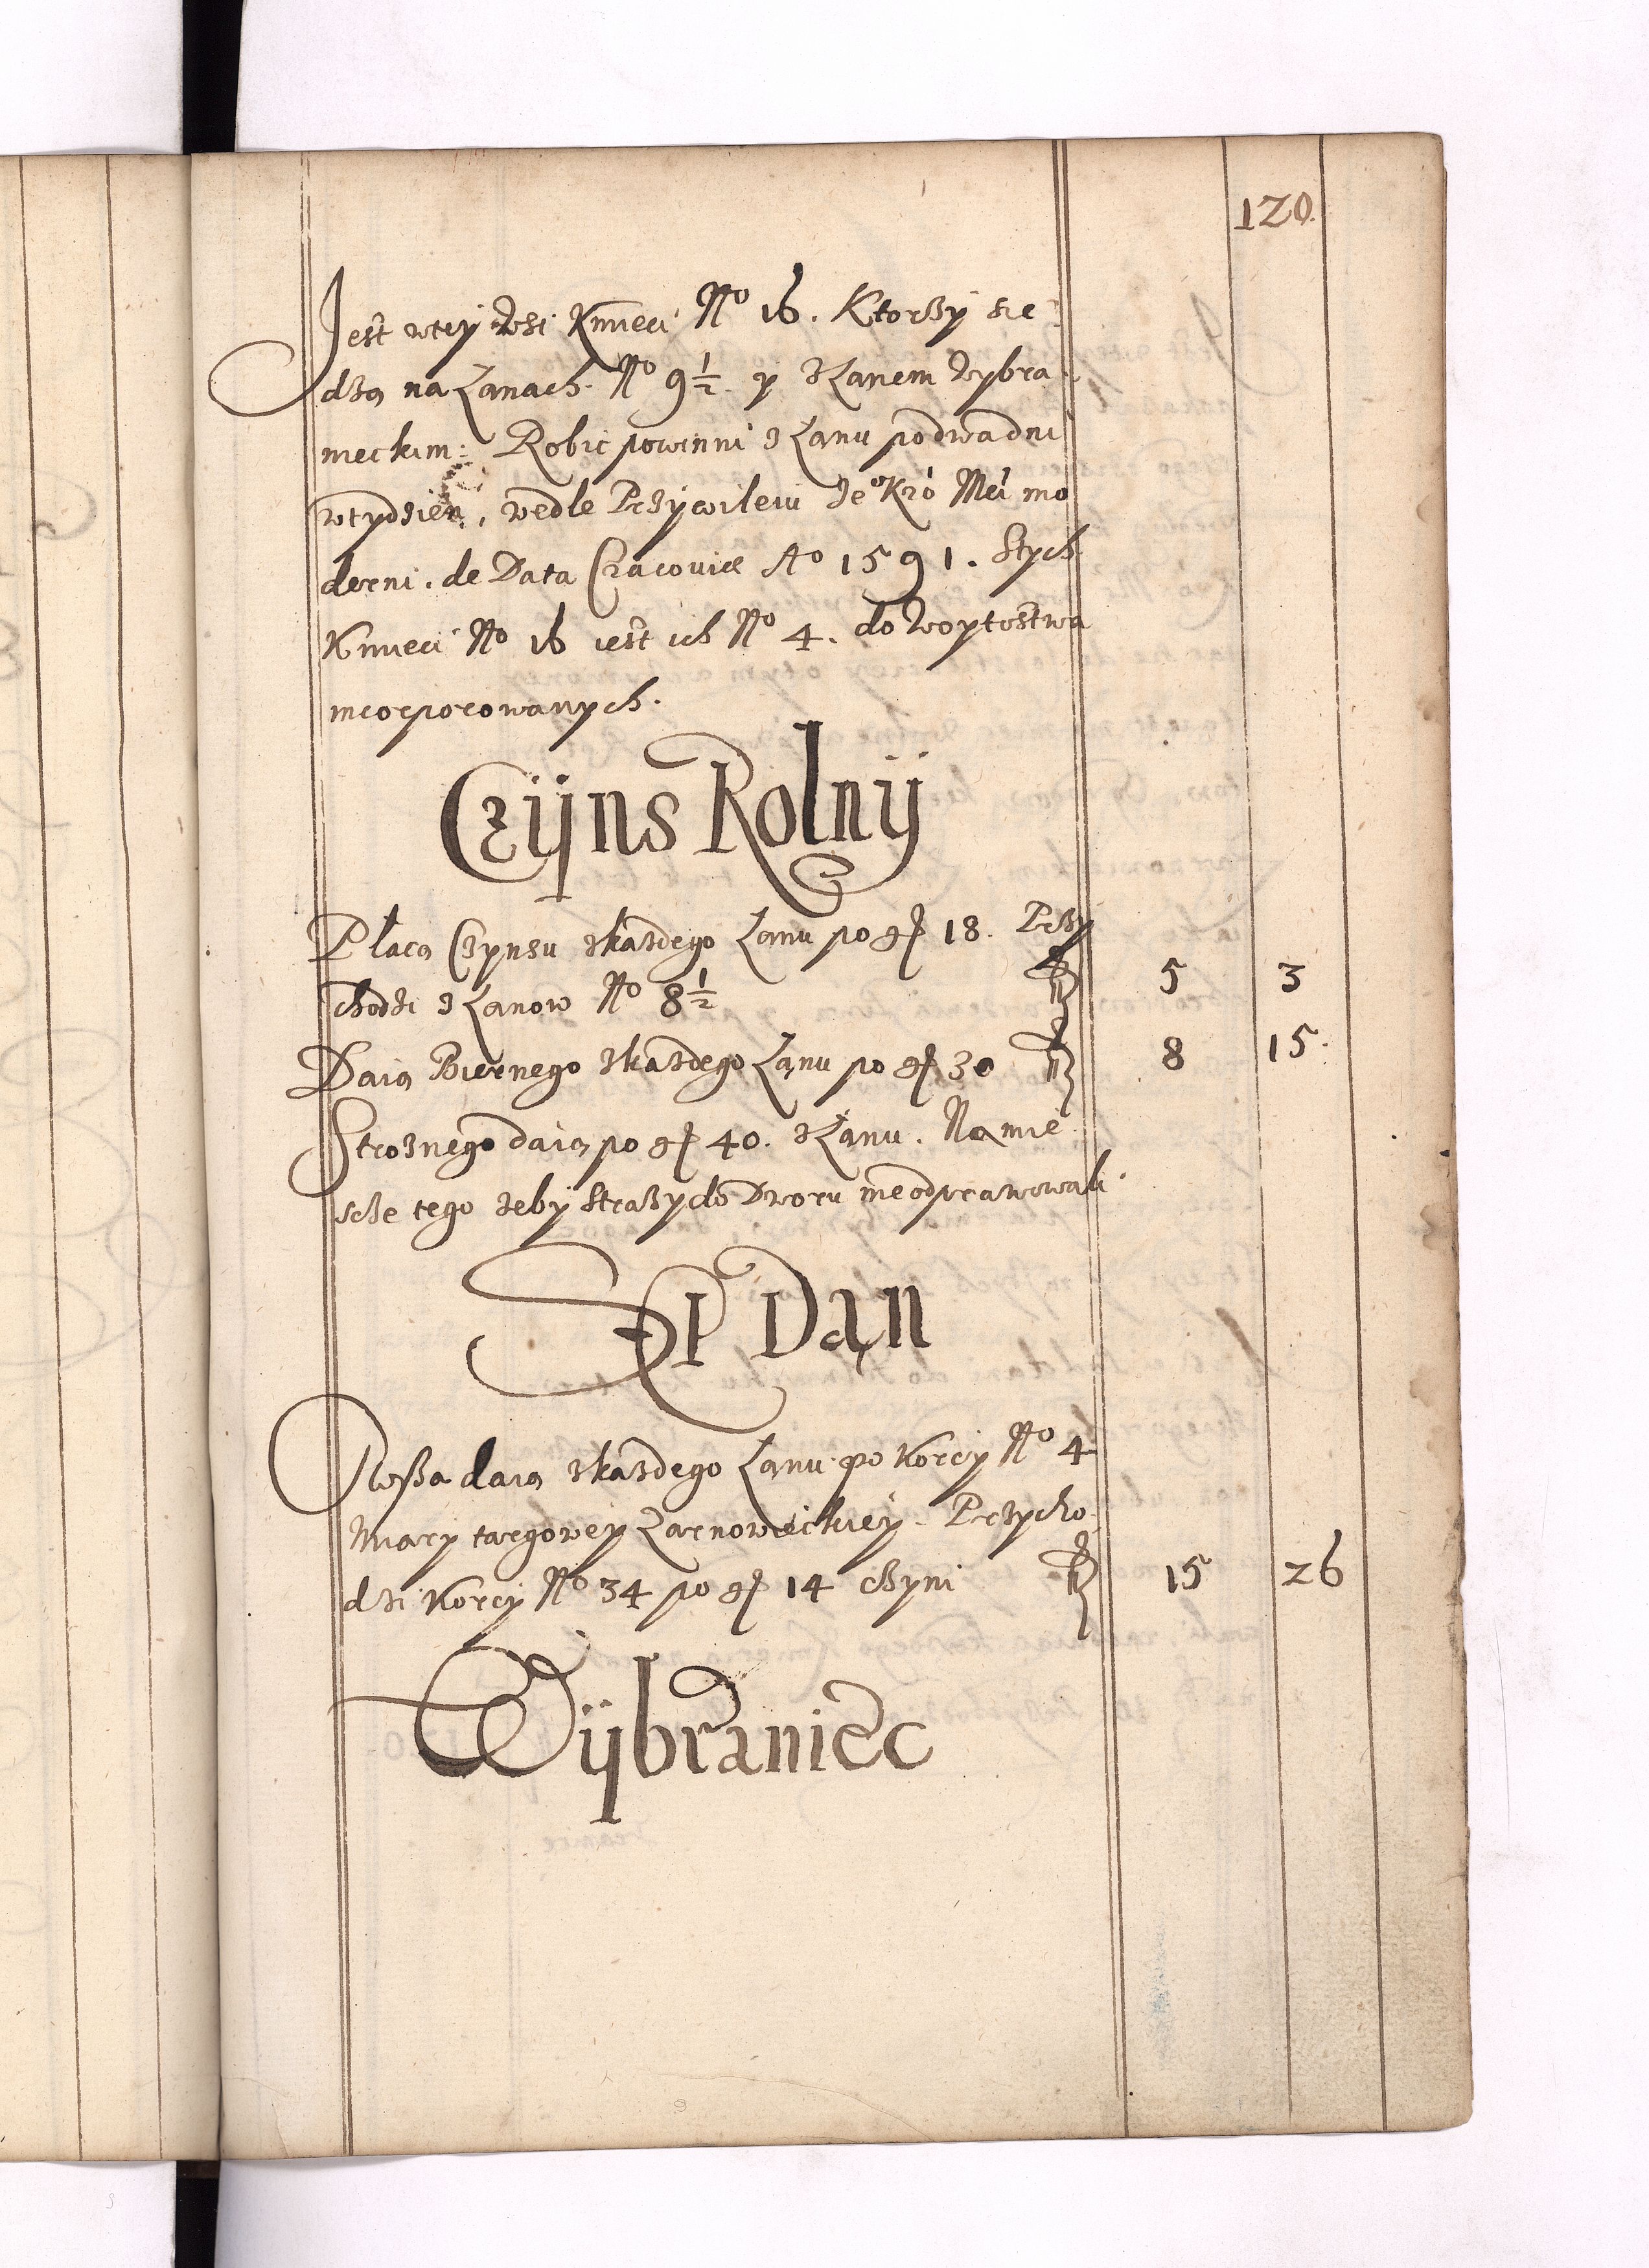 120
Jest wtey Wsi Kmieci No 16. Ktorzy sie
dzą na Łanach. No 9½ y złanem Wybra
nieckim: Robic powinni z Łanu podwadni
wtydzien, wedle Przywileiu Je° Kró Mći mo
derni. de Data Cracoviæ Ao 1591. Stych
Kmieci No 16 iest ich No 4. do Woytostwa
incorporowanych.
Czÿns Rolnÿ
Płacą Czynsu zkazdego Łanu po gr 18. Przy
chodzi z Łanow No 8½ fl 5 3
Daią Biernego zkazdego Łanu po gr 30 fl 8 15
Strożnego daią po gr 40. z Łanu. Na mie
scze tego zeby Strazy do Dworu nieodprawowali
SEP Dan
Owsa daią zkazdego Łanu po Korcy No 4
Miary targowey Żarnowieckiey. Przycho
dzi Korcy No 34 po gr 14 czyni fl 15 26
Wÿbraniec